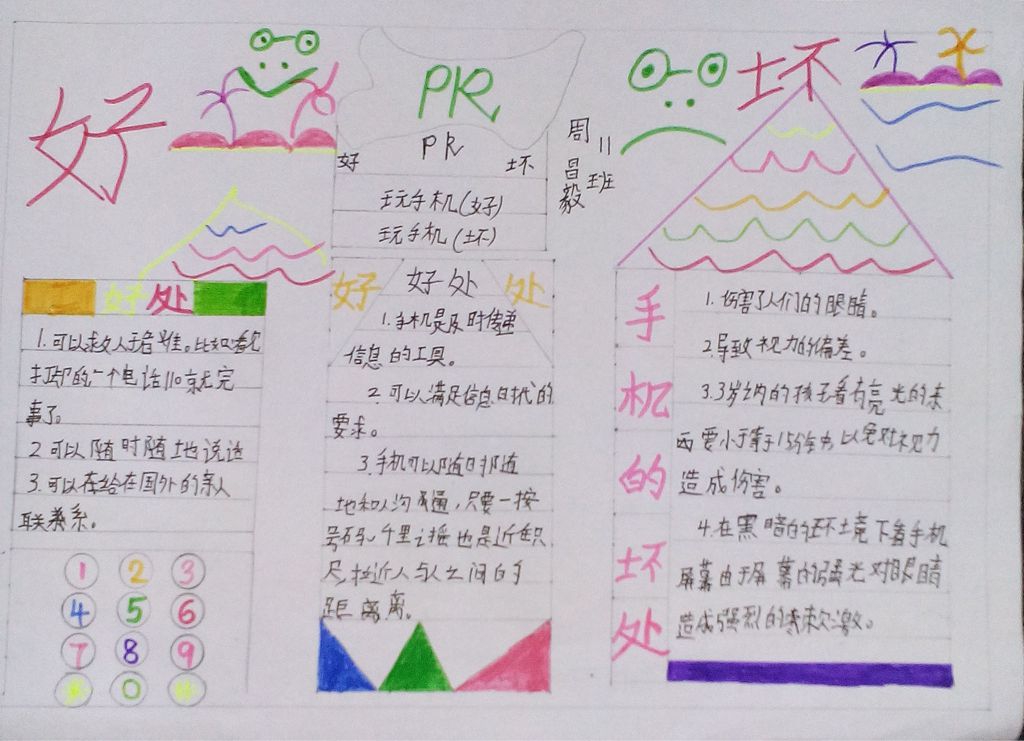 好
PK
PK
好
坏
玩手机(好)
玩手机(坏)
周昌毅
11班
坏
好处
1.可以救人于危难。比如看见
打架的一个电话110就完
事了。
2可以随时随地说话
3.可以在给在国外的亲人
联系。
1 2 3
4 5 6
7 8 9
* 0 #
好 好处 处
1.手机是及时传递
信息的工具。
2.可以满足信息时代的
要求。
3.手机可以随时随
地和人沟通,只要一按
号码,千里之遥也是近在咫
尺,拉近人与人之间的
距离。
手机的坏处
1.伤害了人们的眼睛。
2.导致视力的偏差。
3.3岁之内的孩子看有亮光的东
西要小于等于15分钟以免对视力
造成伤害。
4.在黑暗的环境下看手机
屏幕由于屏幕的强光对眼睛
造成强烈的刺激。